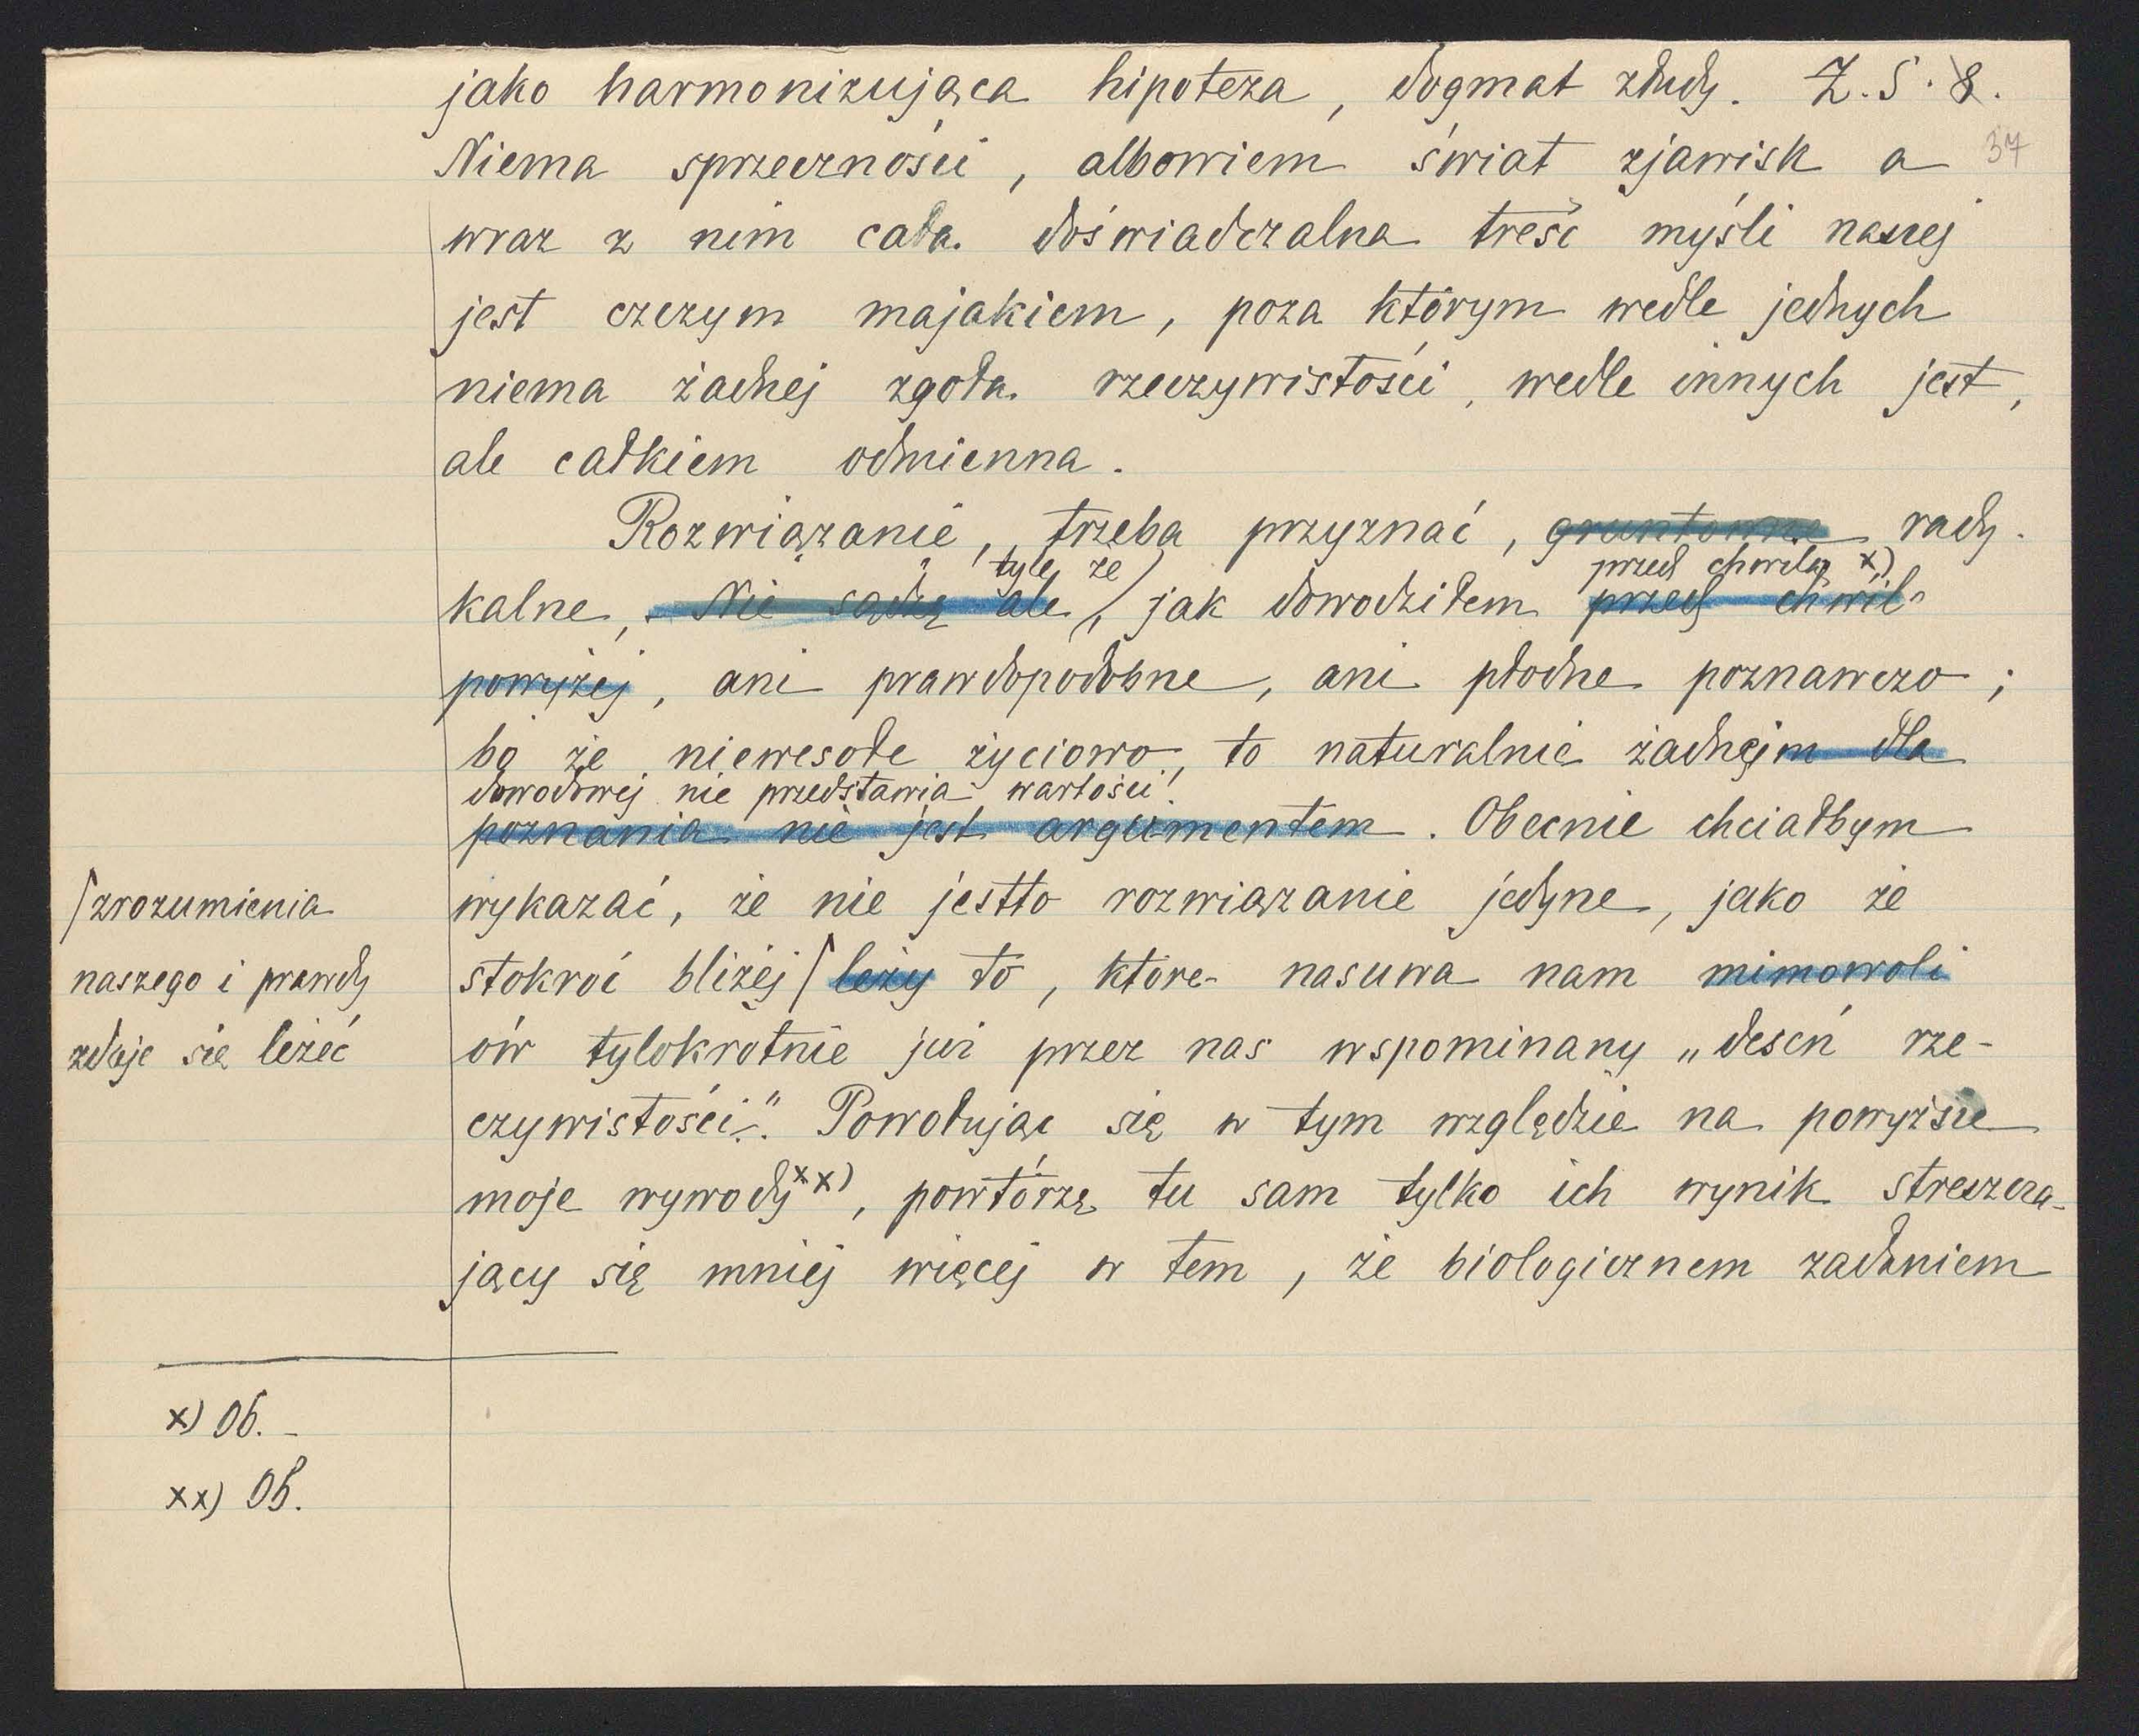 jako harmonizująca hipoteza, dogmat złudy. Z. S. 8.
37
Niema sprzeczności, albowiem świat zjawisk a
wraz z nim cała doświadczalna treść myśli naszej
jest czczym majakiem, poza którym wedle jednych
niema żadnej zgoła rzeczywistości, wedle innych jest,
ale całkiem odmienna.
Rozwiązanie, trzeba przyznać, gruntowne rady-
tyle, że przed chwilą x)
kalne, Nie sądzę ale, jak dowodziłem przed chwil
powyżej, ani prawdopodobne, ani płodne poznawczo;
bo że niewesołe życiowo, to naturalnie żadnejm dla
dowodowej nie przedstawia wartości!
poznania nie jest argumentem. Obecnie chciałbym
wykazać, że nie jestto rozwiązanie jedyne, jako że
stokroć bliżej / leży to, które nasuwa nam mimowoli
/ zrozumienia
naszego i prawdy
zdaje się leżeć
ów tylokrotnie już przez nas wspominany „deseń rze-
czywistości.“ Powołując się w tym względzie na powyższe
moje wywody xx), powtórzę tu sam tylko ich wynik streszcza-
jący się mniej więcej w tem, że biologicznem zadaniem
x) Ob. -
xx) Ob.